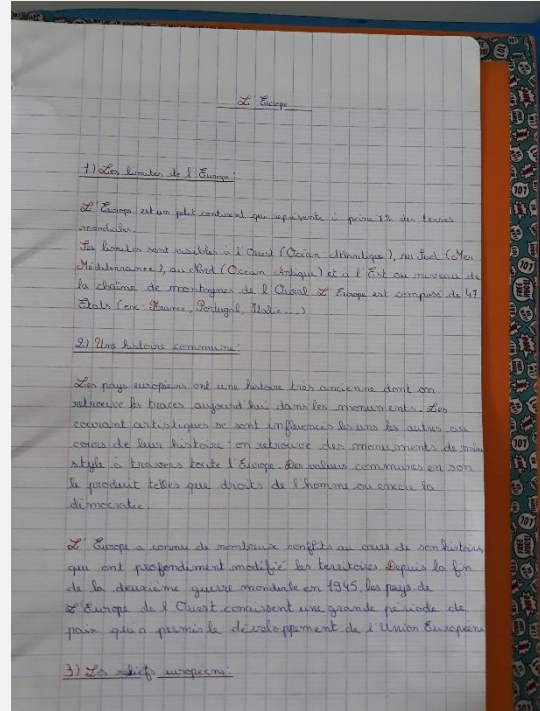 L'Europe
1) Les limites de l'Europe:
L'Europe est un petit continent qui représente à peine 7% des terres
mondiales.
Ses limites sont visibles à l'Ouest (Océan Atlantique), au Sud (Mer
Méditerranée), au Nord (Océan Artique) et à l'Est au niveau de
la chaîne de montagnes de l'Oural. L'Europe est composé de 47
États (ex: France, Portugal, Italie...)
2) Une histoire commune:
Les pays européens ont une histoire très ancienne dont on
retrouve les traces aujourd'hui dans les monuments. Les
courant artistiques se sont influencés les uns les autres au
cours de leur histoire: on retrouve des monuments de mêm
style à travers toute l'Europe. Des valeurs communes en son
le produit telles que droits de l'homme ou encore la
démocratie.
L'Europe a connu de nombreux conflits au cours de son histoire
qui ont profondiment modifié les territoires. Depuis la fin
de la deuxième guerre mondiale en 1945, les pays de
L'Europe de l'Ouest connaissent une grande période de
paix qui a permis le développement de l'Union Européenn
3) Les reliefs européens:
101
101
101
101